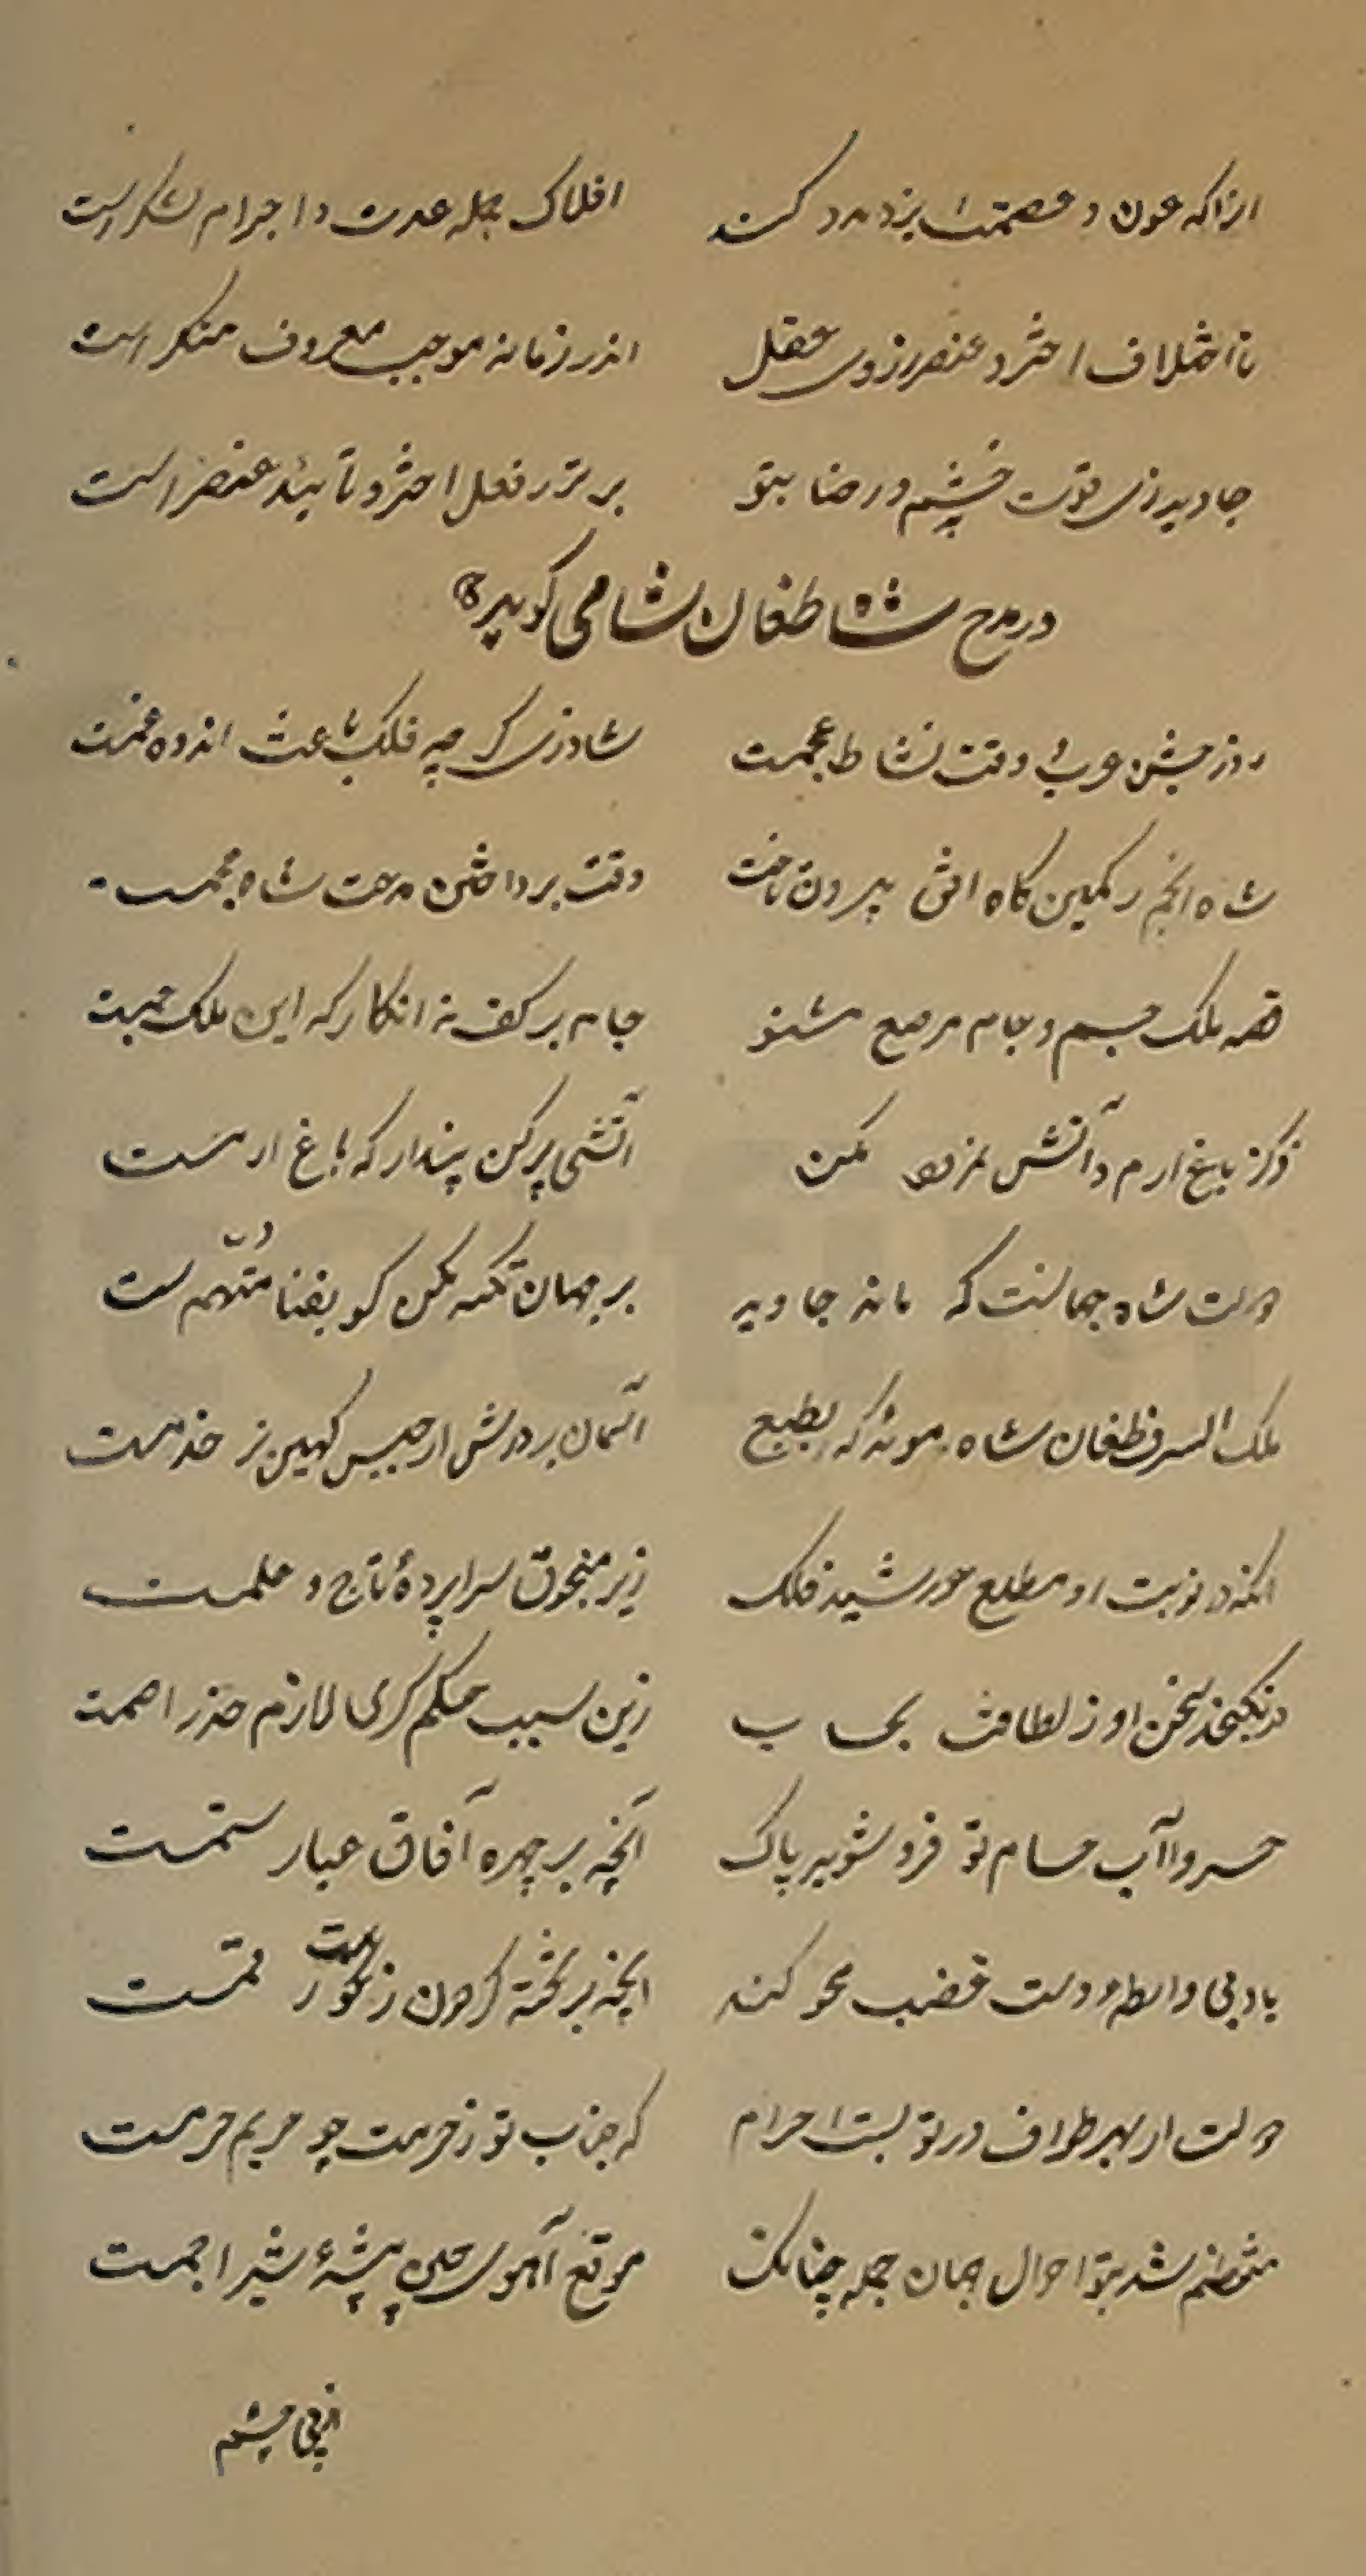 آنرا که عون و عصمت ایزد مدد کند افلاک جمله عدت و اجرام لشکر است
تا اختلاف اختر و عنصر ز روی عقل اندر زمانه موجب معروف و منکر است
جاوید زی که قوت خشم و رضا بتو برتر ز فعل اختر و تأیید عنصر است
در مدح شاه طغان شاهی گوید
روز جشن عرب و وقت نشاط عجمست شاد زی گر چه فلک باعث اندوه و غمست
شاه انجم ز کمین گاه افق بیرون تاخت وقت برداختن مدحت شاه عجمست
قصه ملک جم و جام مرصع مشنو جام بر کف نه انگار که این ملک جمست
ذکر باغ ارم و آتش نمرود مکن آتشی پر کن پندار که باغ ارمست
دولت شاه جهانست که ماند جاوید بر جهان تکیه مکن کو بفنا متهم ست
ملک الشرق طغان شاه مؤید که بطبع آسمان بر درش از جیش کهین ز خدمست
آنکه در نوبت او مطلع خورشید فلک زیر منجوق سراپرده تاج و علمست
در نگنجد سخن او ز لطافت بحساب زین سبب حکم کری لازم حذر اصمست
خسروا آب حسام تو فرو شوید پاک آنچه بر چهره آفاق غبار ستمست
باد بی واسطه دست غضب محو کند آنچه بر تخته گردون ز رقمست
دولت از بهر طواف در تو بست احرام که جناب تو ز حرمت چو حریم حرمست
منتظم شد بتو احوال جهان جمله چنانک موقع آهوی بیشه شیر اجمست
از پی چشم